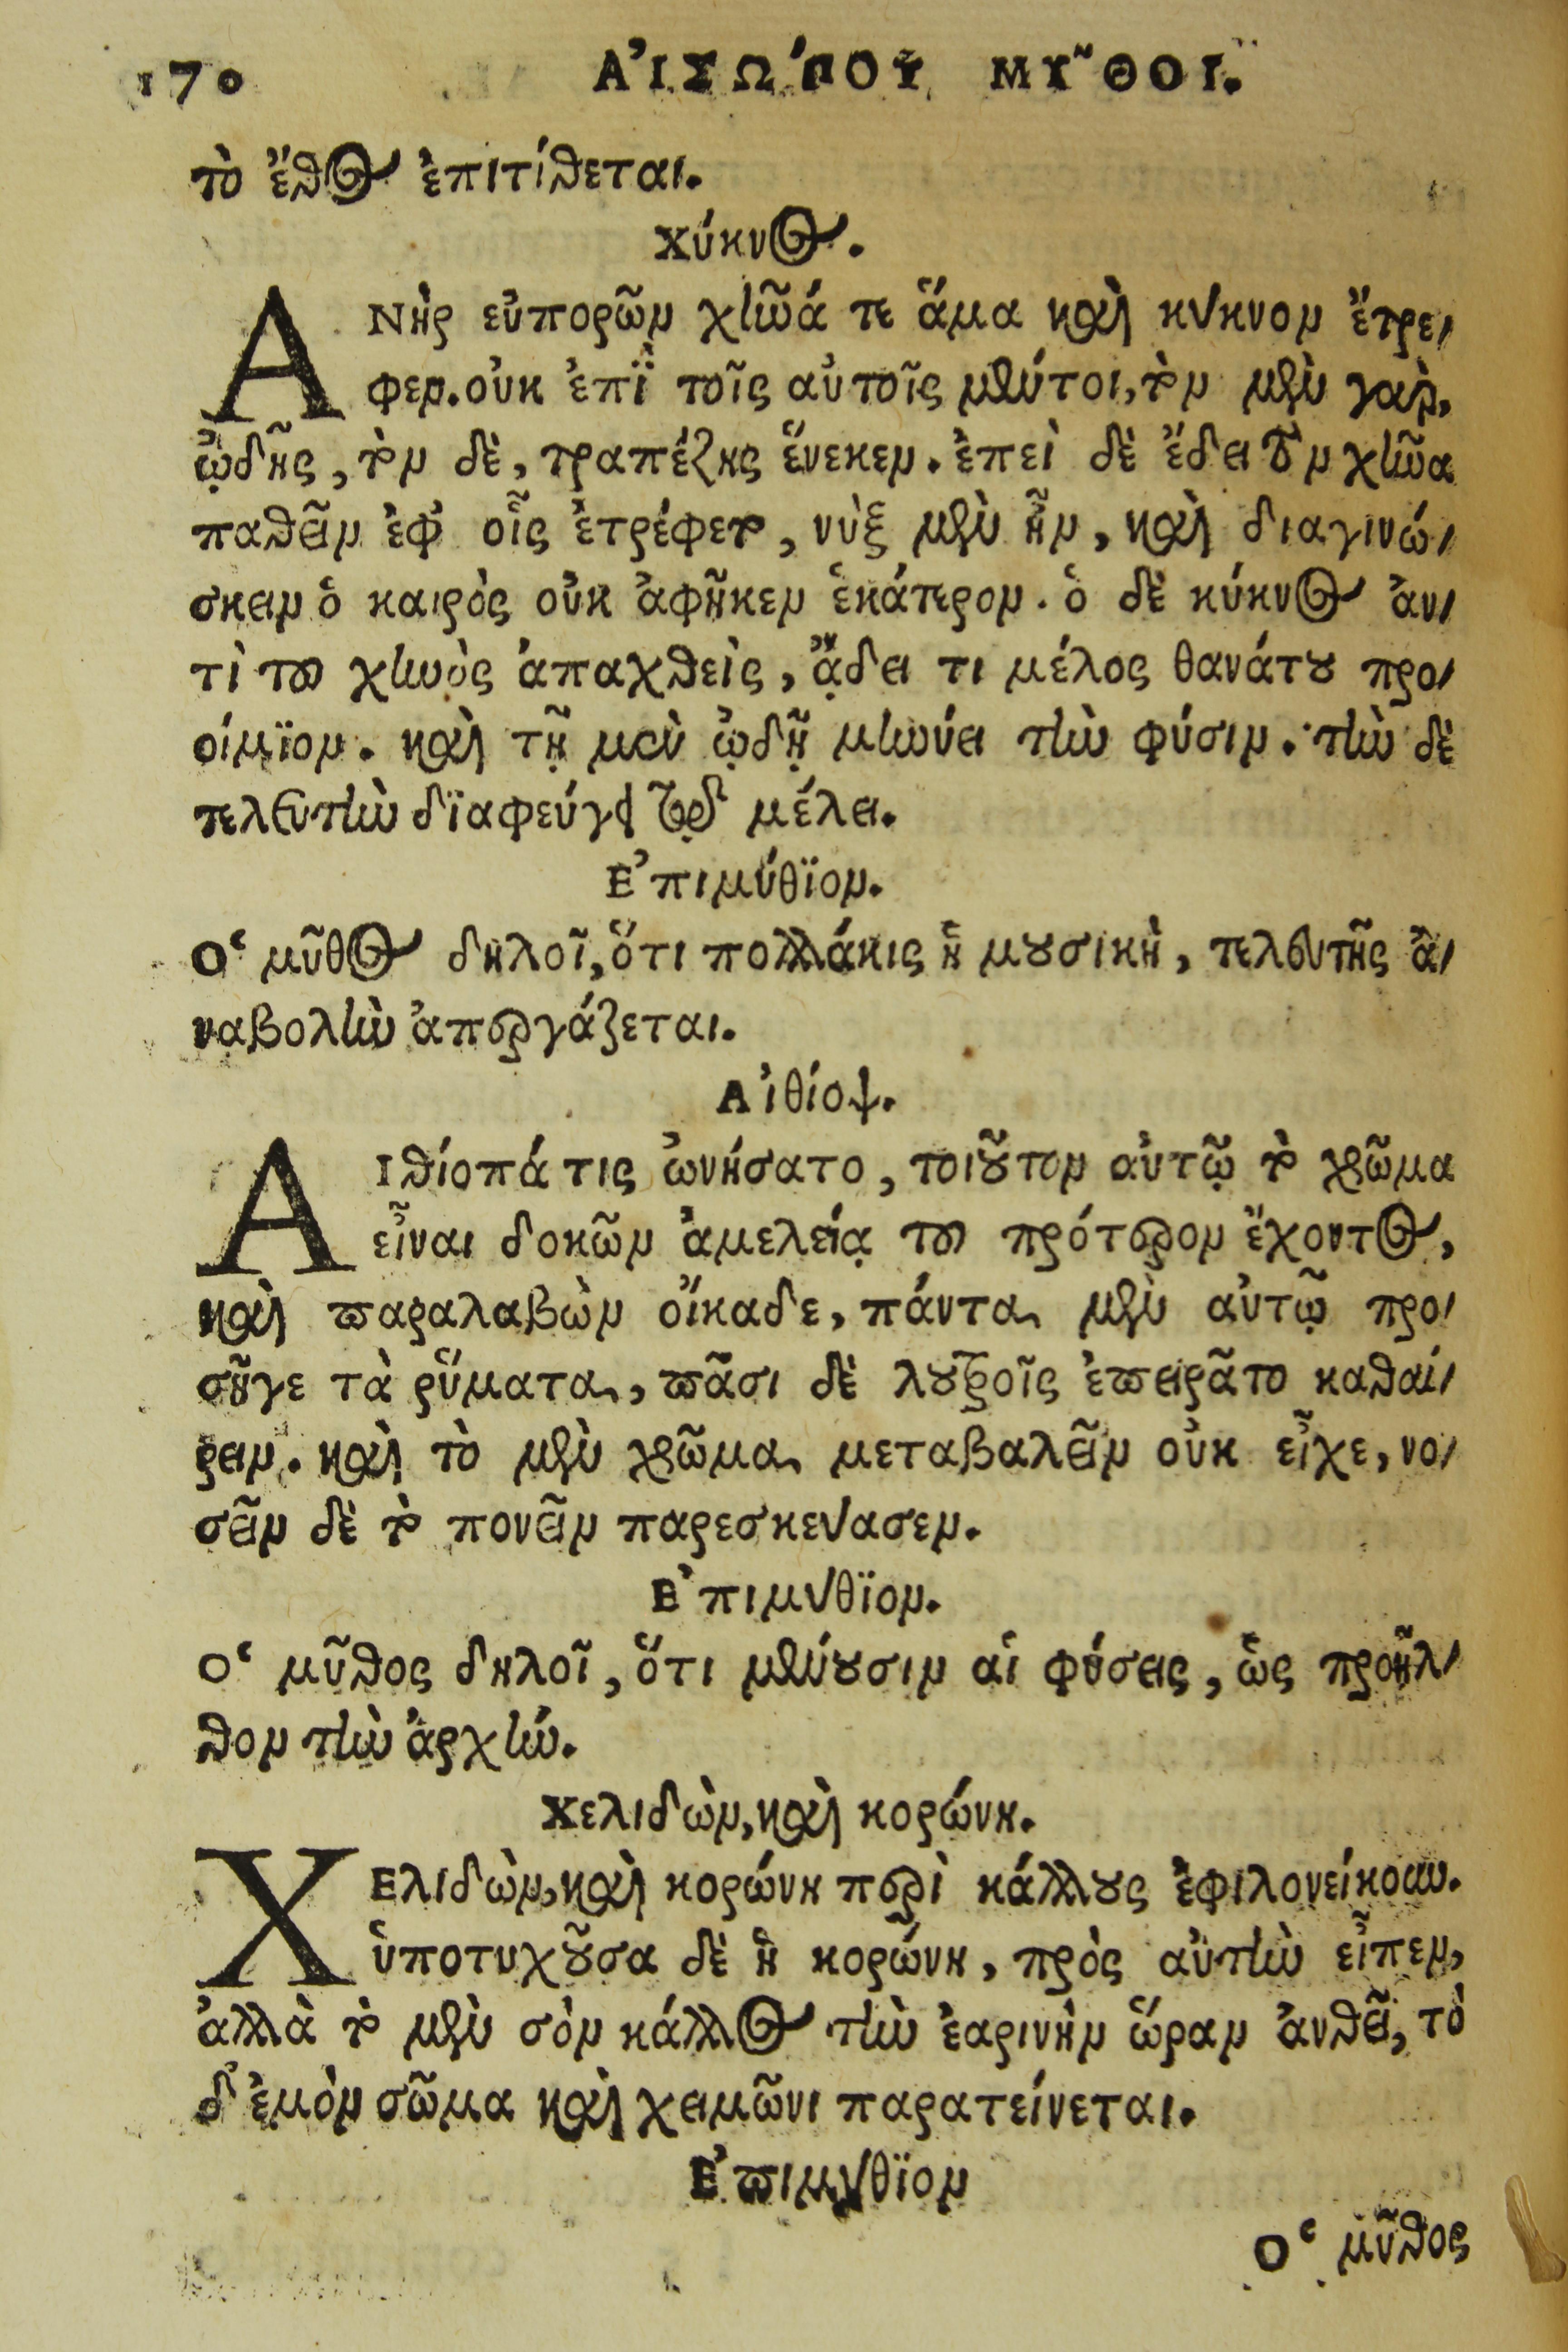 170 ΑἸΣΩΠΟΥ ΜΥ͂ΘΟΙ.
τὸ ἔθος ἐπιτίθεται.
Χύκνος.
ΑΝὴρ εὐπορῶν χῆνά τε ἅμα καὶ κύκνον ἔτρε-
φεν. οὐκ ἐπὶ τοῖς αὐτοῖς μέντοι, τὸν μὲν γὰρ,
ᾠδῆς, τὸν δὲ, τραπέζης ἕνεκεν. ἐπεὶ δὲ ἔδει τὸν χῆνα
παθεῖν ἐφ' οἷς ἐτρέφετο, νὺξ μὲν ἦν, καὶ διαγινώ-
σκειν ὁ καιρὸς οὐκ ἀφῆκεν ἑκάτερον. ὁ δὲ κύκνος ἀν-
τὶ τοῦ χηνὸς ἀπαχθεὶς, ᾄδει τι μέλος θανάτου προ-
οίμϊον. καὶ τῇ μὲν ᾠδῇ μηνύει τὴν φύσιν. τὴν δὲ
τελευτὴν δϊαφεύγει τῷ μέλει.
Ἐπιμύθϊον.
Ὁ μῦθος δηλοῖ, ὅτι πολλάκις ἡ μουσικὴ, τελευτῆς ἀ-
ναβολὴν ἀπεργάζεται.
Αἰθίοψ.
ΑΙθίοπά τις ὠνήσατο, τοιοῦτον αὐτῷ τὸ χρῶμα
εἶναι δοκῶν ἀμελείᾳ τοῦ πρότερον ἔχοντος,
καὶ παραλαβὼν οἴκαδε, πάντα μὲν αὐτῷ προ-
σῆγε τὰ ῥύματα, πᾶσι δὲ λουτροῖς ἐπειρᾶτο καθαί-
ρειν. καὶ τὸ μὲν χρῶμα μεταβαλεῖν οὐκ εἶχε, νο-
σεῖν δὲ τὸ πονεῖν παρεσκεύασεν.
Ἐπιμύθϊον.
Ὁ μῦθος δηλοῖ, ὅτι μένουσιν αἱ φύσεις, ὡς προῆλ-
θον τὴν ἀρχήν.
Χελιδὼν, καὶ κορώνη.
ΧΕλιδὼν, καὶ κορώνη περὶ κάλλους ἐφιλονείκουν.
ὑποτυχοῦσα δὲ ἡ κορώνη, πρὸς αὐτὴν εἶπεν,
ἀλλὰ τὸ μὲν σὸν κάλλος τὴν ἐαρινὴν ὥραν ἀνθεῖ, τὸ
δ' ἐμὸν σῶμα καὶ χειμῶνι παρατείνεται.
Ἐπιμύθϊον
Ὁ μῦθος